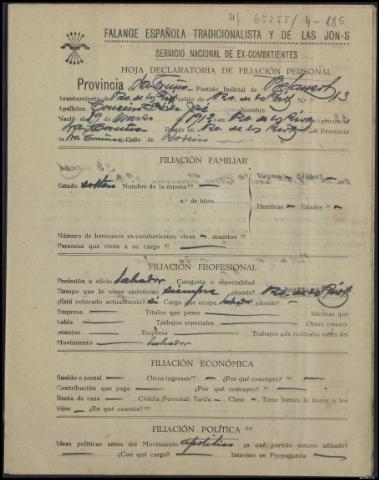 31/ 65255/4-185
FALANGE ESPAÑOLA TRADICIONALISTA Y DE LAS JON-S
SERVICIO NACIONAL DE EX-COMBATIENTES
HOJA DECLARATORIA DE FILIACIÓN PERSONAL
Provincia La Coruña Partido Judicial de Betanzos
Ayuntamiento de Pueblo de N.º 13
Apellidos Nombre José
Nació el 19 Marzo 1913 en provincia
La Coruña Reside en Provincia
La Coruña Calle de
FILIACIÓN FAMILIAR
Varones — Edades —
Estado soltero Nombre de la esposa —
n.º de hijos
Hembras — Edades —
Número de hermanos ex-combatientes vivos — muertos —
Personas que viven a su cargo —
FILIACIÓN PROFESIONAL
Profesión u oficio labrador Categoría o especialidad
Tiempo que lo viene ejerciendo siempre ¿donde?
¿Está colocado actualmente? si Cargo que ocupa labrador ¿donde? —
Empresa — Títulos que posee — Idiomas que
habla — Trabajos especiales — Otros conoci-
mientos — Empresa — Trabajos que realizaba antes del
Movimiento labrador
FILIACIÓN ECONÓMICA
Sueldo o jornal — Otros ingresos — ¿Por qué concepto? —
Contribución que paga — ¿Por qué concepto? —
Renta de casa — Cédula Personal: Tarifa — Clase — Tiene bienes la mujer o los
hijos — ¿En qué cuantía? —
FILIACIÓN POLÍTICA
Ideas políticas antes del Movimiento apolítico a qué partido estuvo afiliado?
¿Con qué cargo? — Intervino en Propaganda —